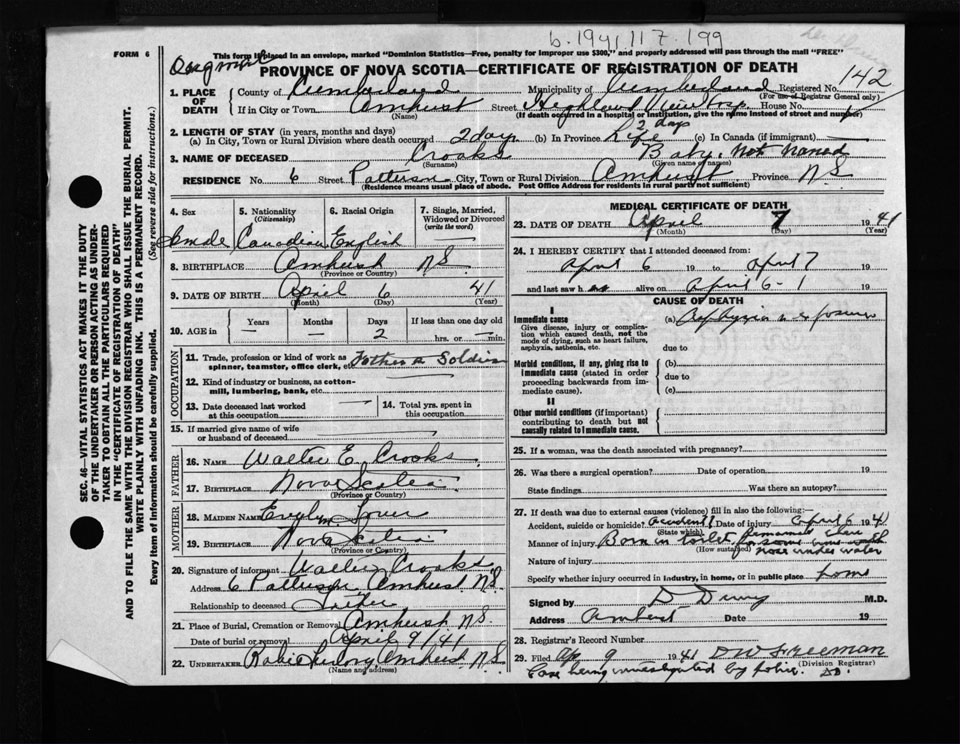 b.1941 117.199
FORM 6
This form if placed in an envelope, marked "Dominion Statistics—Free, penalty for improper use $300," and properly addressed will pass through the mail "FREE"
PROVINCE OF NOVA SCOTIA—CERTIFICATE OF REGISTRATION OF DEATH
1. PLACE OF DEATH County of Cumberland Municipality of Cumberland Registered No. 142
(For use of Registrar General only)
If in City or Town Amherst Street Highland View Hosp. House No.
(Name) (If death occurred in a hospital or institution, give the name instead of street and number)
2. LENGTH OF STAY (in years, months and days)
(a) In City, Town or Rural Division where death occurred 2 days (b) In Province Life 2 days (c) In Canada (if immigrant)
3. NAME OF DECEASED Crooks Baby. Not Named
(Surname) (Given name or names)
RESIDENCE No. 6 Street Patterson City, Town or Rural Division Amherst Province N S
(Residence means usual place of abode. Post Office Address for residents in rural parts not sufficient)
4. Sex 5. Nationality (Citizenship) 6. Racial Origin 7. Single, Married, Widowed or Divorced (write the word)
Canadian English
8. BIRTHPLACE Amherst N S
(Province or Country)
9. DATE OF BIRTH April 6 41
(Month) (Day) (Year)
10. AGE in Years Months Days If less than one day old
2 hrs. or min.
OCCUPATION
11. Trade, profession or kind of work as spinner, teamster, office clerk, etc. Father a Soldier
12. Kind of industry or business, as cotton-mill, lumbering, bank, etc.
13. Date deceased last worked at this occupation 14. Total yrs. spent in this occupation
15. If married give name of wife or husband of deceased
FATHER
16. NAME Walter E. Crooks
17. BIRTHPLACE Nova Scotia
(Province or Country)
MOTHER
18. MAIDEN NAME Evelyn
19. BIRTHPLACE Nova Scotia
(Province or Country)
20. Signature of informant Walter Crooks
Address 6 Patterson Amherst N S.
Relationship to deceased Father
21. Place of Burial, Cremation or Removal Amherst N S.
Date of burial or removal April 9/41
22. UNDERTAKER Amherst N S
(Name and address)
MEDICAL CERTIFICATE OF DEATH
23. DATE OF DEATH April 7 1941
(Month) (Day) (Year)
24. I HEREBY CERTIFY that I attended deceased from:
April 6 19 to April 7 19
and last saw h alive on April 6-1 19
CAUSE OF DEATH
I
Immediate cause (a) Asphyxia & exposure
Give disease, injury or complication which caused death, not the mode of dying, such as heart failure, asphyxia, asthenia, etc.
due to
Morbid conditions, if any, giving rise to immediate cause (stated in order proceeding backwards from immediate cause).
(b)
due to
(c)
II
Other morbid conditions (if important) contributing to death but not causally related to immediate cause.
25. If a woman, was the death associated with pregnancy?
26. Was there a surgical operation? Date of operation 19
State findings Was there an autopsy?
27. If death was due to external causes (violence) fill in also the following:
Accident, suicide or homicide? Accident? Date of injury April 6 1941
(State which)
Manner of injury Born in toilet remained there for some time with nose under water
(How sustained)
Nature of injury
Specify whether injury occurred in industry, in home, or in public place home
Signed by M.D.
Address Amherst Date 19
28. Registrar's Record Number
29. Filed Ap 9 1941 D W Freeman
(Division Registrar)
Case being investigated by police.
SEC. 46—VITAL STATISTICS ACT MAKES IT THE DUTY OF THE UNDERTAKER OR PERSON ACTING AS UNDERTAKER TO OBTAIN ALL THE PARTICULARS REQUIRED IN THE "CERTIFICATE OF REGISTRATION OF DEATH"
AND TO FILE THE SAME WITH THE DIVISION REGISTRAR WHO SHALL ISSUE THE BURIAL PERMIT.
WRITE PLAINLY WITH UNFADING INK. THIS IS A PERMANENT RECORD.
Every item of Information should be carefully supplied. (See reverse side for instructions.)